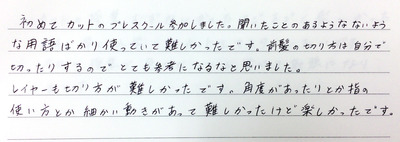 初めて カットの プレスクール 参加しました。聞いたことのあるようなないよう
な用語ばかり使っていて難しかったです。前髪の切り方は自分で
切ったりするので とても参考になるなと思いました。
レイヤーも切り方が 難しかったです。角度があったりとか指の
使い方とか 細かい動きがあって 難しかったけど楽しかったです。